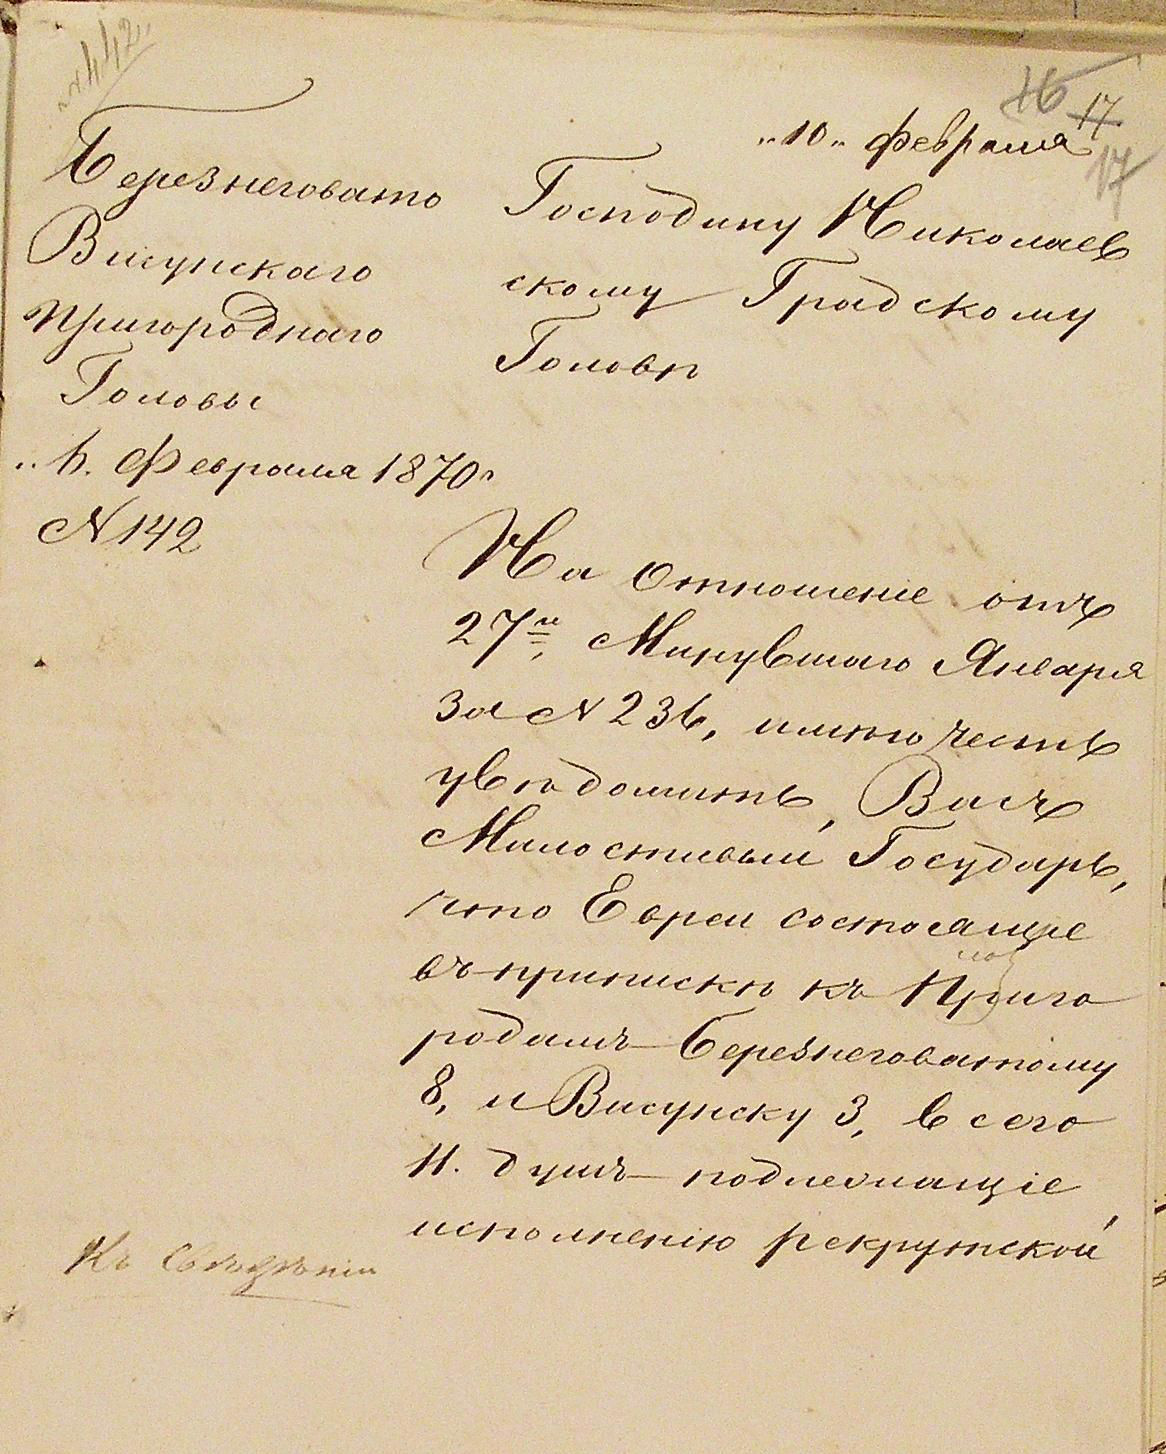 № 442.
16 17
17
"10" февраля
Березнеговато
Висунскаго
Пригороднаго
Головы
"6" Февраля 1870 г
№ 142
Господину Николаев
скому Градскому
Головѣ
На отношеніе отъ
27го, Минувшаго Января
за № 236, имѣю честь
увѣдомить, Васъ
Милостивый Государь,
что Евреи состоящіе
въ припискѣ къ Приго
родамъ Березнеговатому
8, и Висунску 3, всего
11. душъ подлежащіе
исполненію рекрутской
Къ Свѣдѣнію